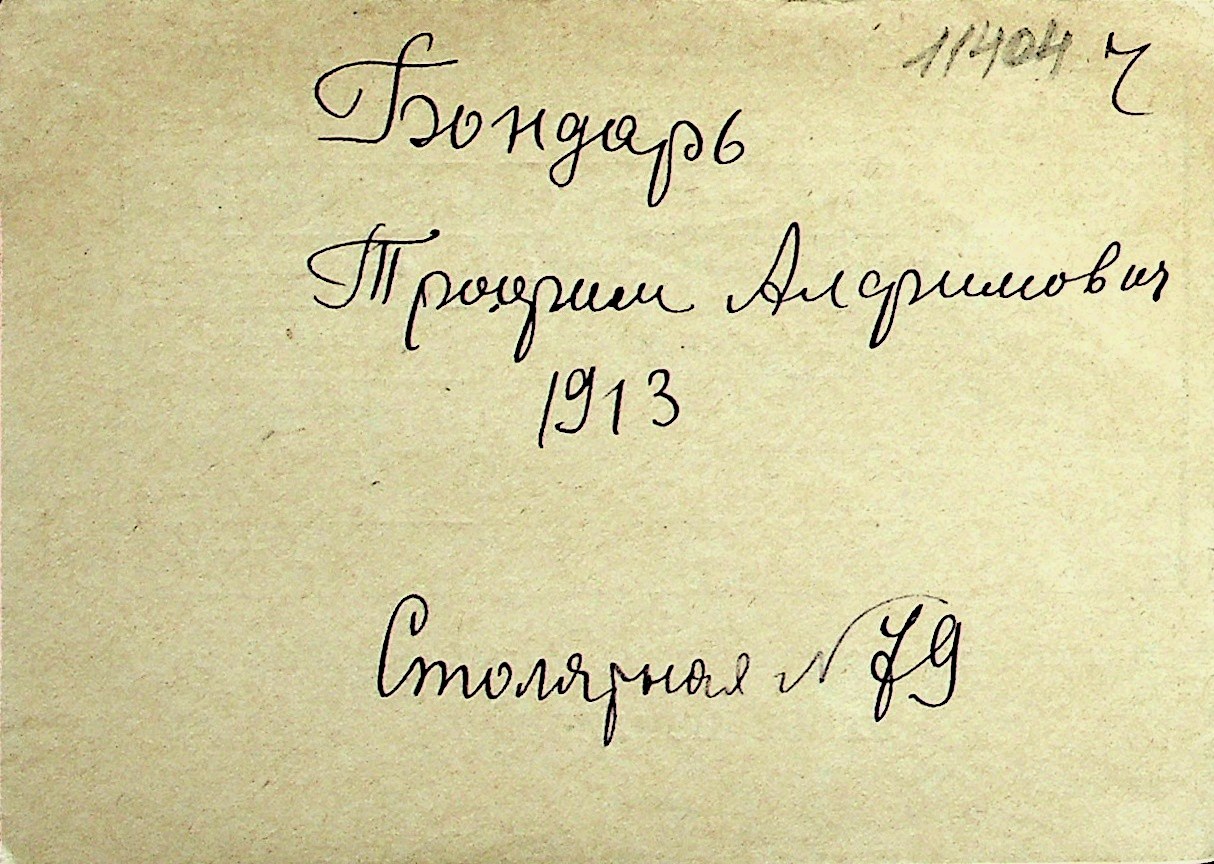 11404 Ч
Бондарь
Трофим Алфимович
1913
Столярная N 79